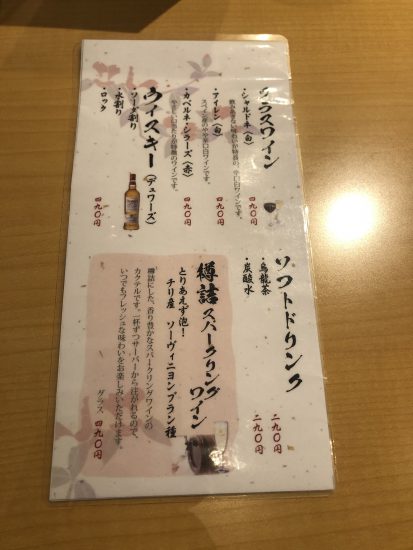 グラスワイン
・シャルドネ(白)
四九〇円
・アイレン(白)
スペイン産のやや辛口白ワインです。
四九〇円
・カベルネ・シラーズ(赤)
四九〇円
ウィスキー(デュワーズ)
・ソーダ割り
・水割り
・ロック
四九〇円
ソフトドリンク
・烏龍茶
二九〇円
・炭酸水
二九〇円
樽詰スパークリングワイン
とりあえず泡!
チリ産 ソーヴィニヨンブラン種
樽詰にした、香り豊かなスパークリングワインの
カクテルです。一杯ずつサーバーから注がれるので、
いつでもフレッシュな味わいをお楽しみいただけます。
グラス 四九〇円